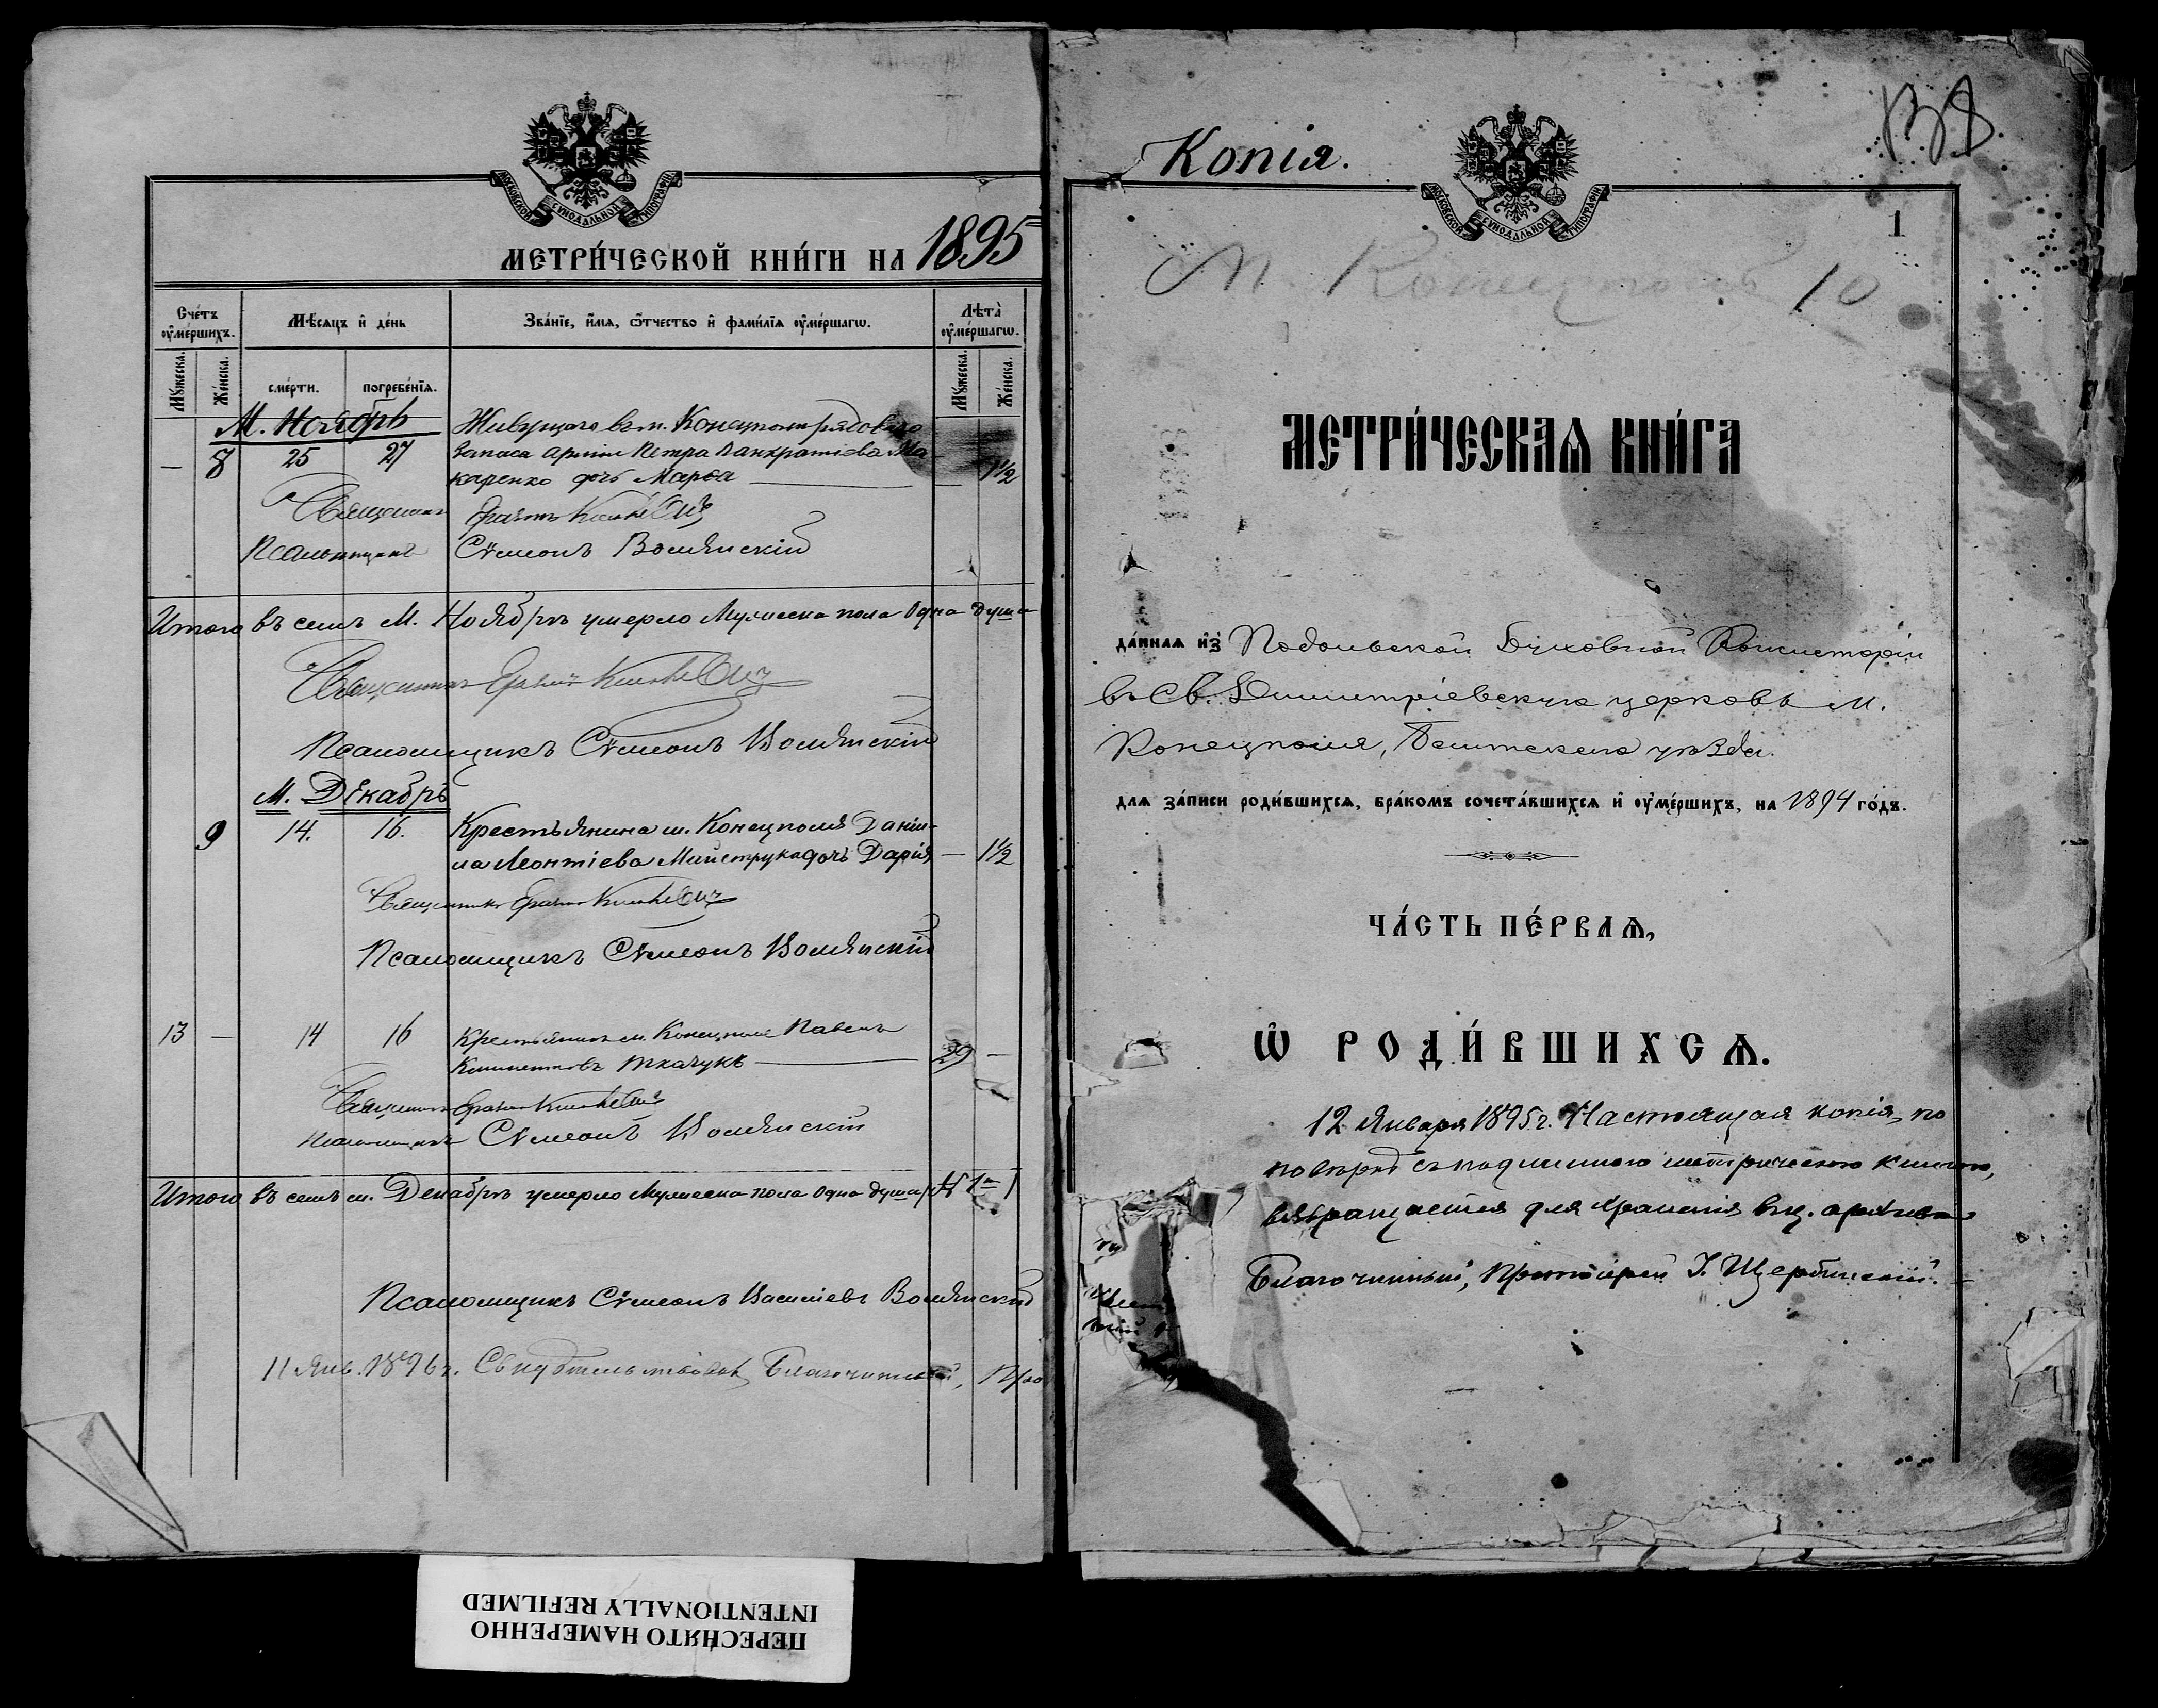 МОСКОВСКОЙ СѴНОДАЛЬНОЙ ТИПОГРАФІИ
МЕТРИ́ЧЕСКОЙ КНИ́ГИ НА 1895
Сче́тъ ᲂу҆ме́ршихъ.
Мѣ́сяцъ и҆ де́нь
Зва́нїе, и҆́мя, ѻ҆́тчество и҆ фами́лїя ᲂу҆ме́ршагѡ.
Лѣта̀ ᲂу҆ме́ршагѡ.
Мꙋ́жеска.
Же́нска.
сме́рти.
погребе́нїя.
Мꙋ́жеска.
Же́нска.
М. Ноябрь
Живущаго въ м. Конецполѣ рядового
— 8 25 27 запаса арміи Петра Панкратіева Ма-
каренко дочь Марѳа — 1½
Священникъ
Псаломщикъ Сѵмеонъ Волянскій
Итого въ семъ М. Ноябрѣ умерло Мужеска пола Одна душа
Священникъ
Псаломщикъ Сѵмеонъ Волянскій
М. Декабрь
9 14. 16. Крестьянина м. Конецполя Дані-
ла Леонтіева Майструка дочь Дарія — 1½
Священникъ
Псаломщикъ Сѵмеонъ Волянскій
13 — 14 16 Крестьянинъ м. Конецполя Павелъ
Климентовъ Ткачукъ — 29 —
Священникъ
Псаломщикъ Сѵмеонъ Волянскій
Итого въ семъ м. Декабрѣ умерло Мужеска пола Одна душа
Псаломщикъ Сѵмеонъ Василіевъ Волянскій
11 Янв. 1896 г. Свидѣтельствовалъ Благочинный,
ПЕРЕСНЯТО НАМЕРЕННО
INTENTIONALLY REFILMED
Копія.
138
МОСКОВСКОЙ СѴНОДАЛЬНОЙ ТИПОГРАФІИ
1
М. Конецполь 10
МЕТРИ́ЧЕСКАѦ КНИ́ГА
да́нная и҆з̾ Подольской Духовной Консисторіи
въ Св. Димитріевскую церковь м.
Конецполя, Балтскаго уѣзда.
для за́писи роди́вшихся, бра́комъ сочета́вшихся и҆ ᲂу҆ме́ршихъ, на 1894 го́дъ.
ЧА́СТЬ ПЕ́РВАѦ,
Ѡ҆ РОДИ́ВШИХСѦ.
12 Января 1895 г. Настоящая копія, по
повѣркѣ съ подлинною метрическою книгою,
возвращается для храненія въ ц. архивѣ
Благочинный, Протоіерей І. Щербинскій.